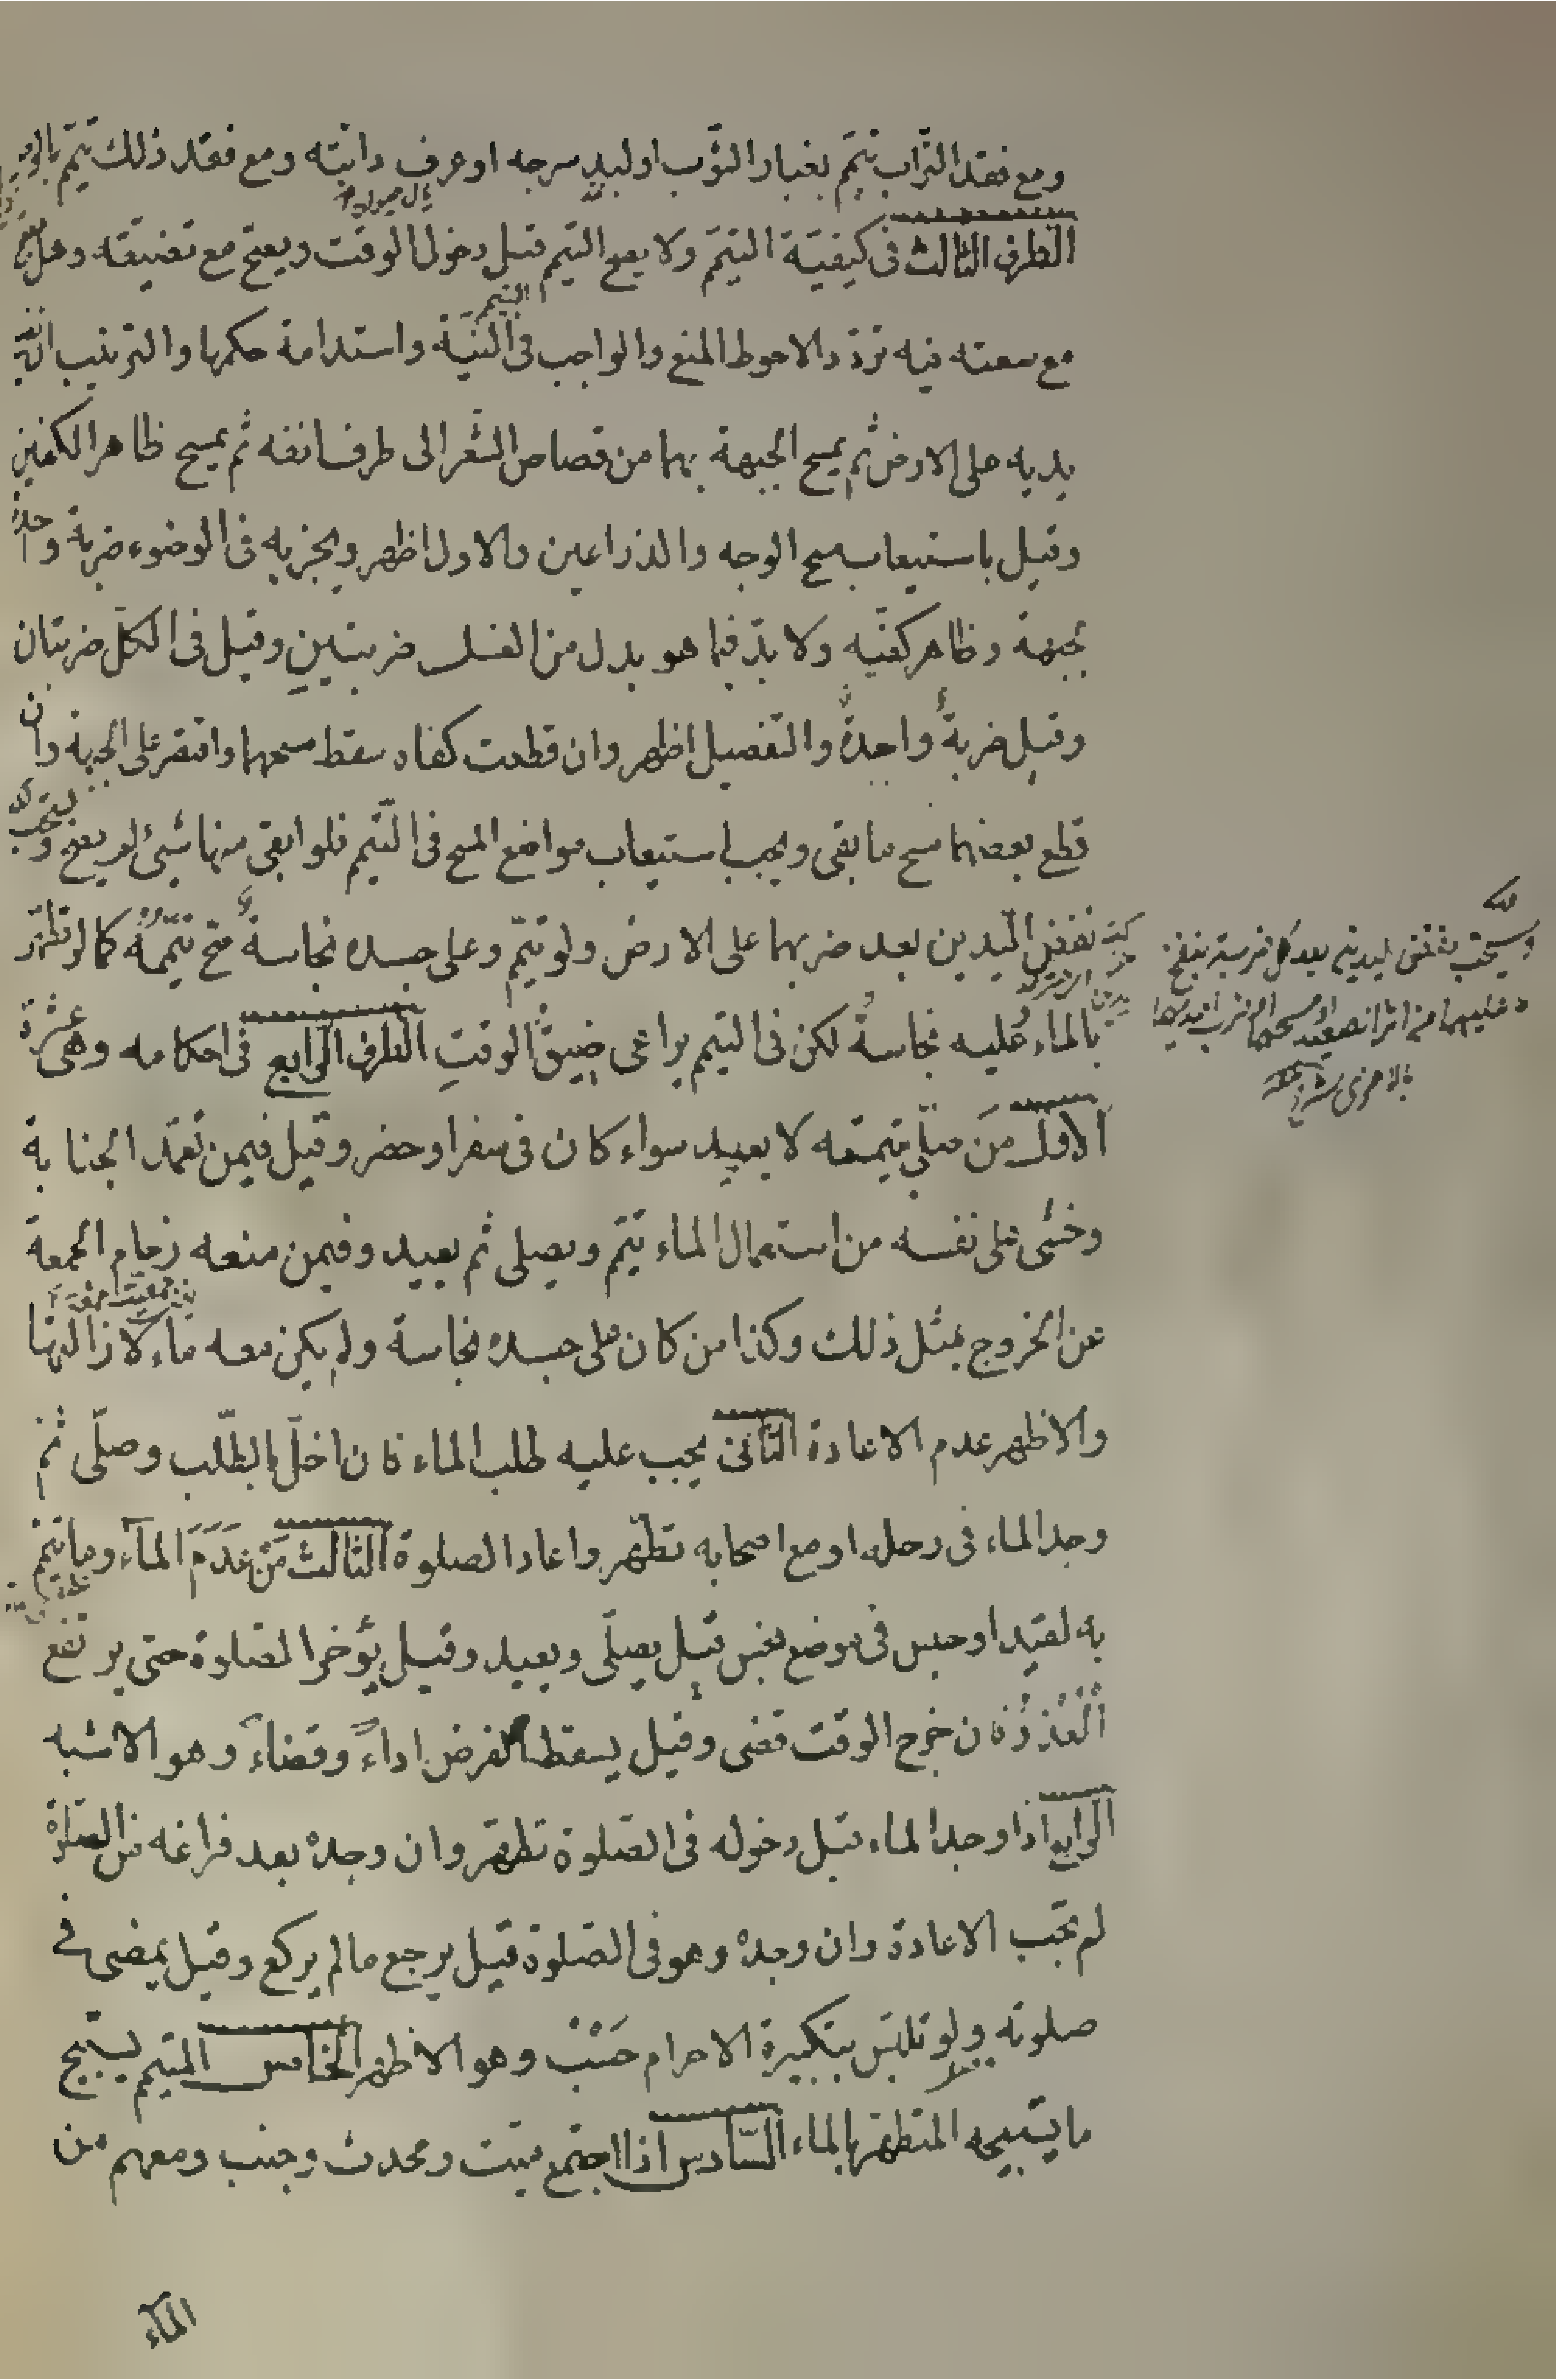 ومع فقد التراب تيمّم بغبار الثوب او لبد سرجه او عرف دابّته ومع فقد ذلك تيمّم بالوحل
الطرف الثالث فى كيفيّة التيمّم ولا يصح التيمم قبل دخول الوقت ويصحّ مع تضيّقه وهل يصحّ
مع سعته فيه تردّد والاحوط المنع والواجب فى التيمم النيّة واستدامة حكمها والترتيب
يديه على الارض ثم يمسح الجبهة بهما من قصاص الشّعر الى طرف انفه ثم يمسح ظاهر الكفين
وقيل باستيعاب مسح الوجه والذراعين والاول اظهر ويجزيه فى الوضوء ضربة واحدة
لجبهة وظاهر كفّيه ولا بدّ فيما هو بدل من الغسل ضربتين وقيل فى الكلّ ضربتان
وقيل ضربةٌ واحدةٌ والتفصيل اظهر وان قطعت كفاه سقط مسحهما واقتصر على الجبهة وان
قطع بعضهما مسح ما بقى ويجب استيعاب مواضع المسح فى التّيمم فلو ابقى منها شيئ لم يصح ويستحب
نفض اليدين بعد ضربهما على الارض ولو تيمّم وعلى جسده نجاسةٌ صح تيمّمُهُ كما لو تطهّر
بالماء وعليه نجاسةٌ لكن فى التيمم يراعى ضيق الوقتِ الطرف الرابع فى احكامه وهى عشرة
الاول مَن صلّى بتيمّمه لا يعيد سواء كان فى سفر او حضر وقيل فيمن تعمّد الجنابة
وخشى على نفسه من استعمال الماء تيمّم ويصلى ثم يعيد وفيمن منعه زحام الجمعة
عن الخروج بمثل ذلك وكذا من كان على جسده نجاسة ولم يكن معه ماء لازالتها
والاظهر عدم الاعادة الثّانى يجب عليه طلب الماء فان اخلّ بالطّلب وصلّى ثم
وجد الماء فى رحله او مع اصحابه تطهّر واعاد الصلوة الثالث مَنْ عَدَمَ المآء وما يتيمّم
به لقيد او حبس فى موضع نجس قيل يصلّى ويعيد وقيل يؤخر الصّلوة حتى يرتفع
الْعُذرُ فان خرج الوقت قضى وقيل يسقط الفرض اداءً وقضاءً وهو الاشبه
الرابع اذا وجد الماء قبل دخوله فى الصّلوة تطهّر وان وجده بعد فراغه من الصّلوة
لم تجب الاعادة وان وجده وهو فى الصّلوة قيل يرجع ما لم يركع وقيل يمضى فى
صلوته ولو تلبّس بتكبيرة الاحرام حَسْبُ وهو الاظهر الخامس المتيمم يستبيح
ما يستبيحه المتطهّر بالماء السّادس اذا اجتمع ميّت ومحدث وجنب ومعهم من
المآء
ويستحب نفض اليدين بعد كل ضربة
عليهما من اثر الصعيد او مسحهما او ضرب احديهما
بالاخرى